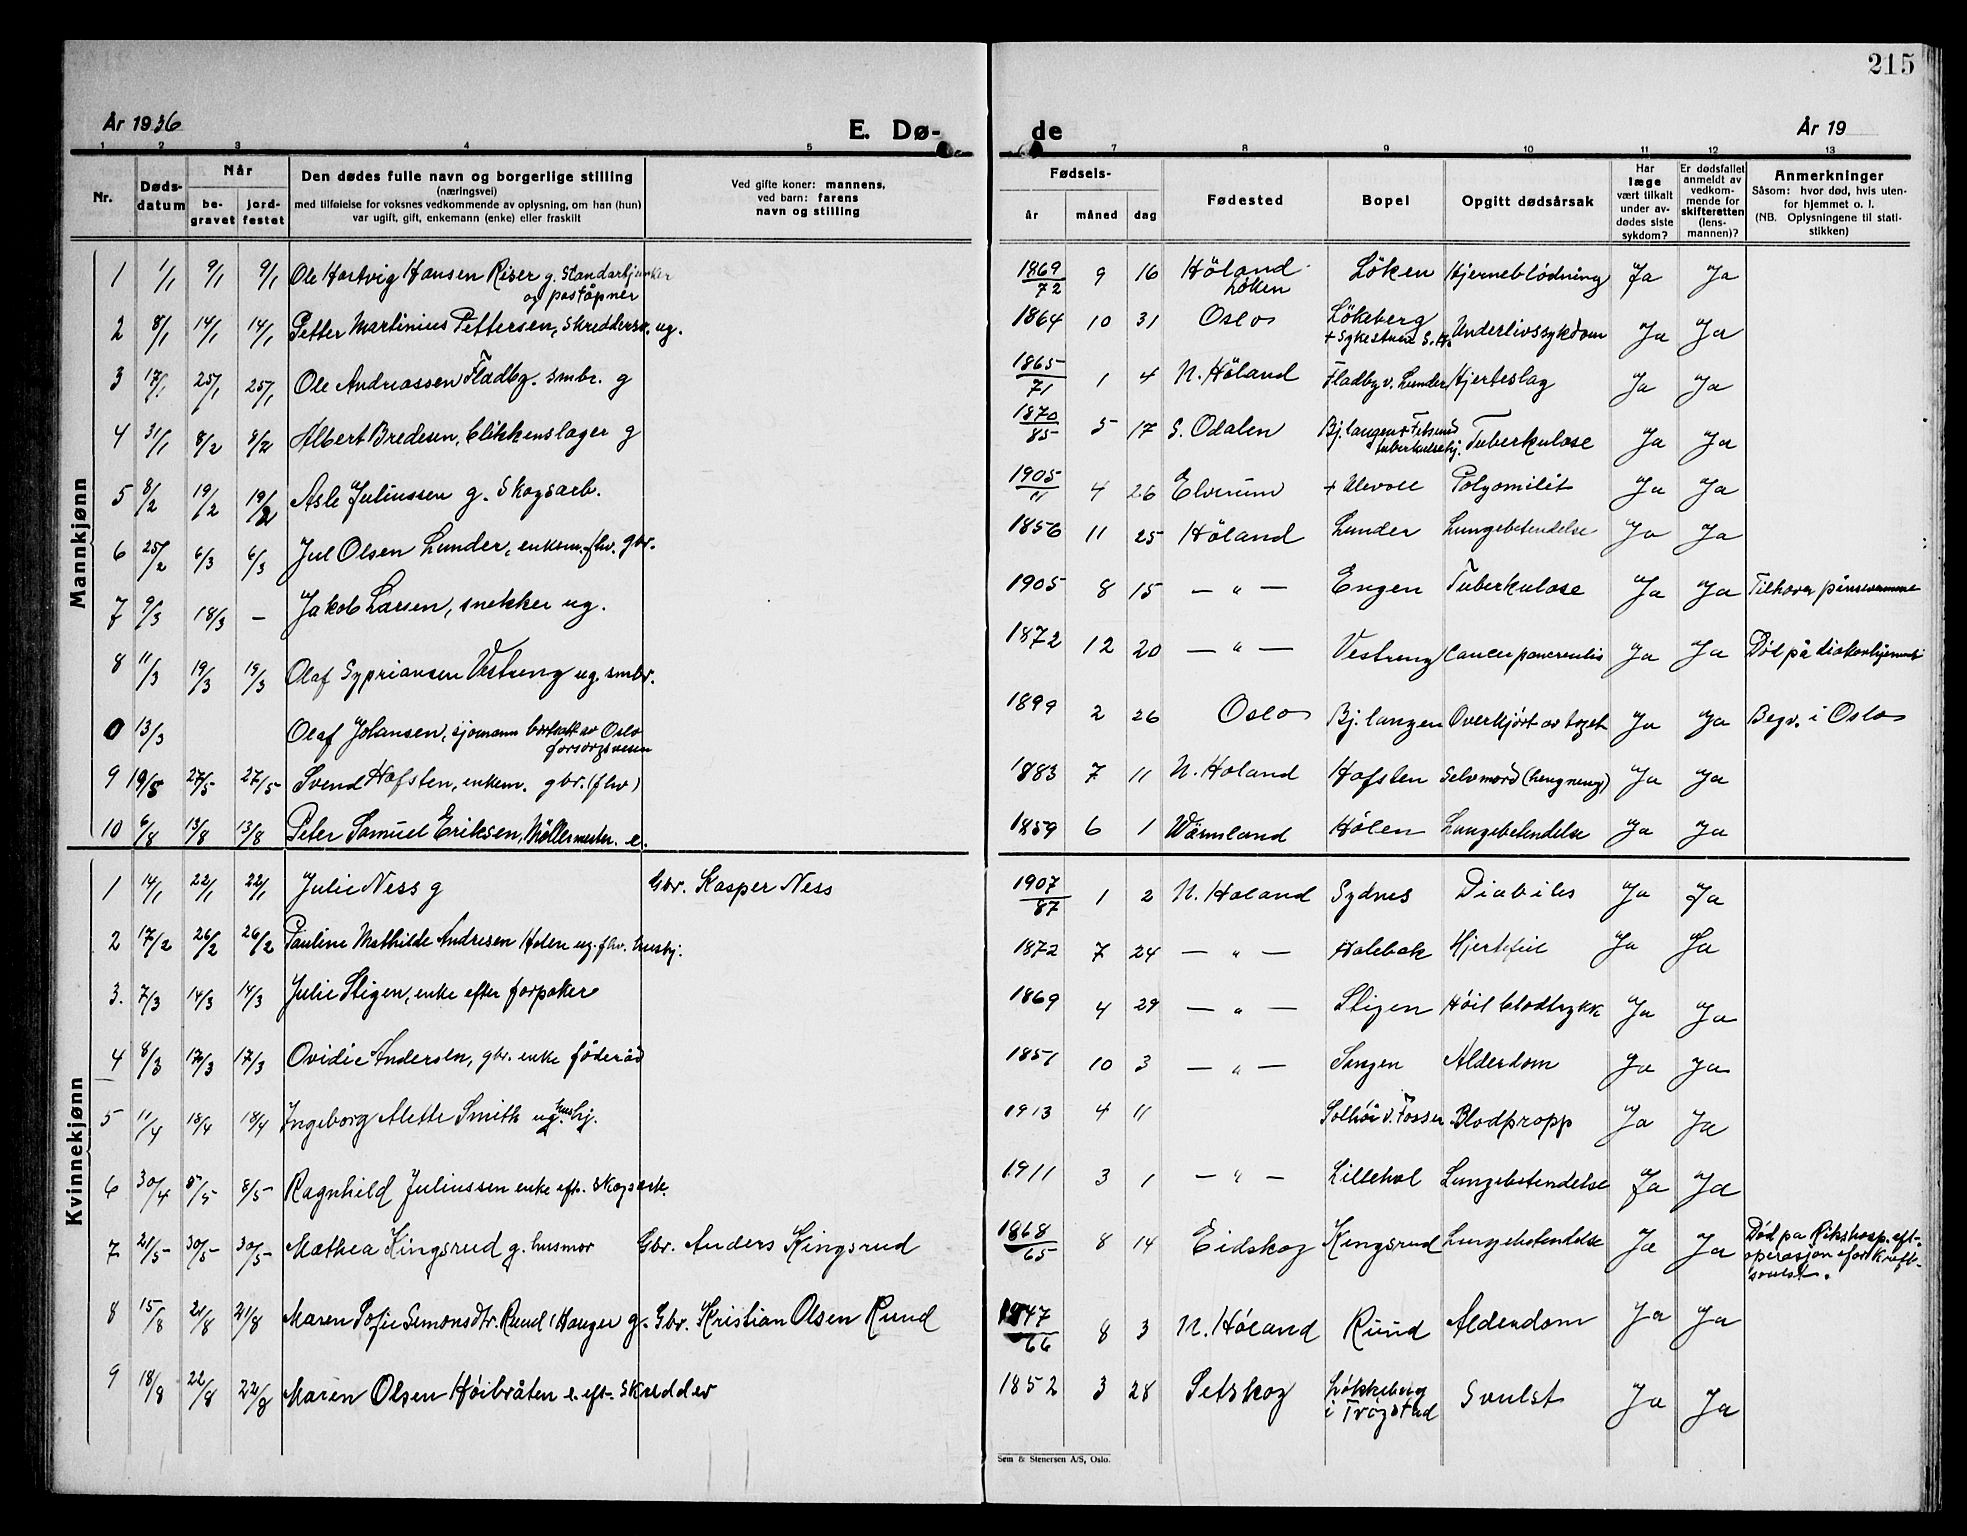 215
År 1936
E. Dø-
de
År 19
1 2 3 4 5 7 8 9 10 11 12 13
Nr.
Døds-
datum
Når
be-
gravet
jord-
festet
Den dødes fulle navn og borgerlige stilling
(næringsvei)
med tilføielse for voksnes vedkommende av oplysning, om han (hun)
var ugift, gift, enkemann (enke) eller fraskilt
Ved gifte koner: mannens,
ved barn: farens
navn og stilling
Fødsels-
år måned dag
Fødested
Bopel
Opgitt dødsårsak
Har
læge
vært tilkalt
under av-
dødes siste
sykdom?
Er dødsfallet
anmeldt av
vedkom-
mende for
skifteretten
(lens-
mannen)?
Anmerkninger
Såsom: hvor død, hvis uten-
for hjemmet o. l.
(NB. Oplysningene til stati-
stikken)
Mannkjønn
1 1/1 9/1 9/1 Ole Hartvig Hansen Riser g. Standartjunker 1869/72 9 16 Höland Löken Hjerneblödning Ja Ja
og poståpner Löken
2 8/1 14/1 14/1 Petter Martinius Pettersen, Skreddersv. ug. 1864 10 31 Oslo Lökeberg Underlivssykdom Ja Ja
+ Sykestuen
3 17/1 25/1 25/1 Ole Andreassen Fladby. smbr. g 1865/71 1 4 N. Höland Fladby v. Lunder Hjerteslag Ja Ja
4 31/1 8/2 8/2 Albert Bredesen, blikkenslager g 1870/85 5 17 S. Odalen Bj.langen + Fetsund Tuberkulose Ja Ja
tuberkulosehj.
5 8/2 19/2 19/2 Asle Juliussen g. Skogsarb. 1905/11 4 26 Elverum + Ulevoll Polyomilit Ja Ja
6 25/2 6/3 6/3 Jul Olsen Lunder, enkem. fhv. gbr. 1856 11 25 Höland Lunder Lungebetendelse Ja Ja
7 9/3 18/3 – Jakob Larsen, snekker ug. 1905 8 15 – " – Engen Tuberkulose Ja Ja Tilhører pinsevennene
8 11/3 19/3 19/3 Olaf Sypriansen Vestreng ug. smbr. 1872 12 20 – " – Vestreng Cancer pancreatis Ja Ja Död på diakonhjemmet
0 13/3 Olaf Johansen, sjømann bortsatt av Oslo 1899 2 26 Oslo Bj.langen Overkjört av toget Ja Ja Begr. i Oslo
forsorgsvesen
9 19/5 27/5 27/5 Svend Hofsten, enkem. gbr. (fhv) 1883 7 11 N. Höland Hofsten Selvmord (hengning) Ja Ja
10 6/8 13/8 13/8 Peter Samuel Eriksen, Möllermester. e. 1859 6 1 Wärmland Hölen Lungebetendelse Ja Ja
Kvinnekjønn
1 14/1 22/1 22/1 Julie Ness g Gbr. Kasper Ness 1907/87 1 2 N. Höland Sydnes Diabetes Ja Ja
2 17/2 26/2 26/2 Pauline Mathilde Andresen Holen ug. fhv. hushj. 1872 7 24 – " – Holebak Hjertefeil Ja Ja
3. 7/3 14/3 14/3 Julie Stigen, enke efter forpakter 1869 4 29 – " – Stigen Höit blodtrykk Ja Ja
4 8/3 17/3 17/3 Ovidie Andersen, gbr. enke föderåd 1851 10 3 – " – Alderdom Ja Ja
5 11/4 18/4 18/4 Ingeborg Alette Smith ug. hushj. 1913 4 11 Solhöi v. Fosser Blodpropp Ja Ja
6 30/4 8/5 8/5 Ragnhild Juliussen enke eft. skogsarb. 1911 3 1 – " – Lillehol Lungebetendelse Ja Ja
7 21/5 30/5 30/5 Mathea Kingsrud g. husmor Gbr. Anders Kingsrud 1868/65 8 14 Eidskog Kingsrud Lungebetendelse Ja Ja Död på Rikshosp. eft.
operasjon for kreft-
svulst.
8 15/8 21/8 21/8 Maren Sofie Simonsdtr. Rund f. Hauger g. Gbr. Kristian Olsen Rund 1847/66 8 3 N. Höland Rund Alderdom Ja Ja
9 18/8 22/8 22/8 Maren Olsen Höibråten e. eft. Skredder 1852 3 28 Setskog Lökkeberg Svulst Ja Ja
i Trögstad
Sem & Stenersen A/S, Oslo.